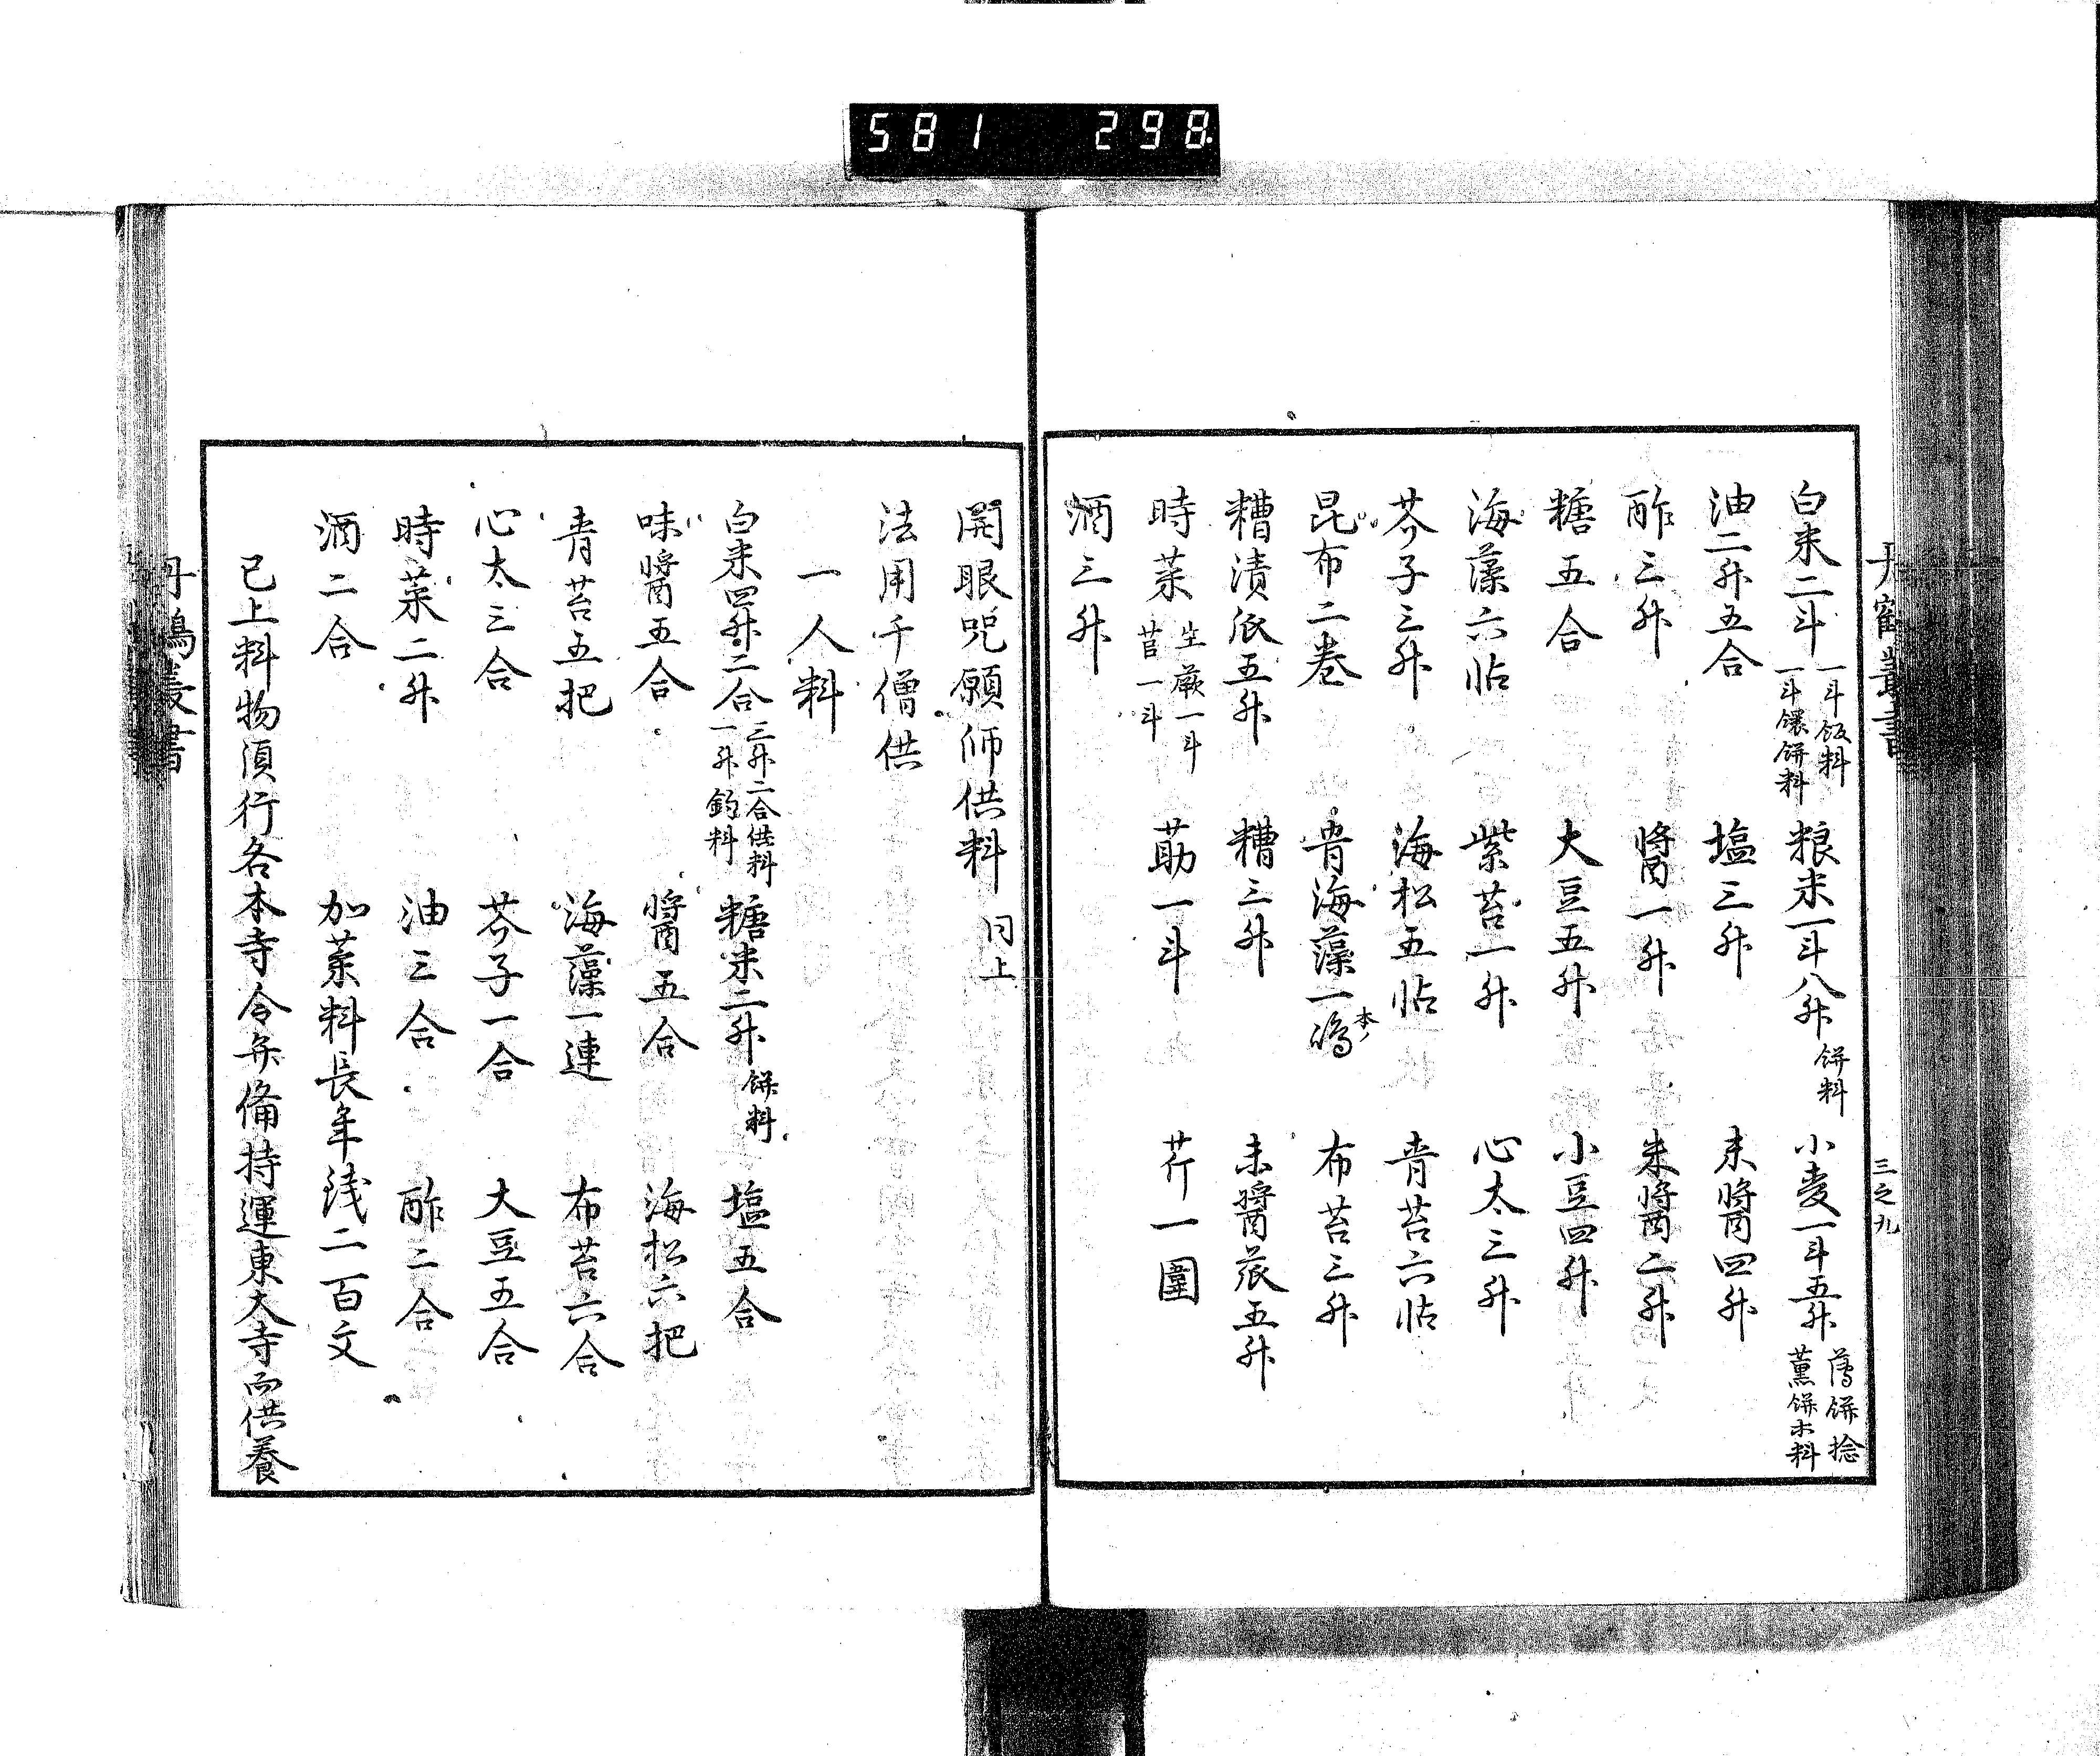 581 298
丹鶴叢書
三之九
白米二斗 一斗飯料 一斗𫗬餅料 粮米一斗八升 餅料 小麦一斗五升 薄餅捻 薫餅木料
油二升五合 塩三升 末醤四升
酢三升 醤一升 米醤二升
糖五合 大豆五升 小豆四升
海藻六帖 紫苔一升 心太三升
芥子三升 海松五帖 青苔六帖
昆布二巻 青海藻一 本ノ 布苔三升
糟漬瓜五升 糟三升 未醤苽五升
時菜 生蕨一斗 莒一斗 莇一斗 芹一圍
酒三升
開眼咒願師供料 同上
法用千僧供
一人料
白米四升二合 三升二合供料 一升 料 糖米二升 餅料 塩五合
味醤五合 醤五合 海松六把
青苔五把 海藻一連 布苔六合
心太三合 芥子一合 大豆五合
時菜二升 油三合 酢二合
酒二合 加菜料長年銭二百文
已上料物湏行各本寺令弁備持運東大寺而供養
丹鶴叢書